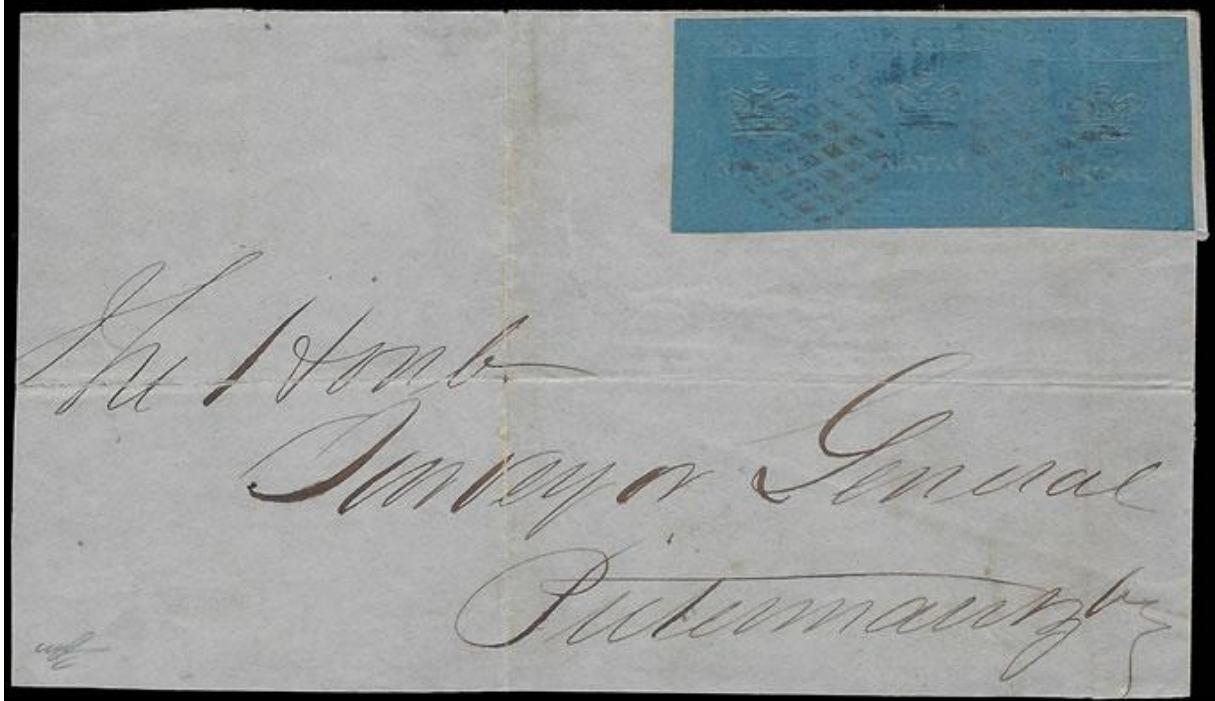 NATAL
The Honb
Surveyor General
Pietermaritzbg